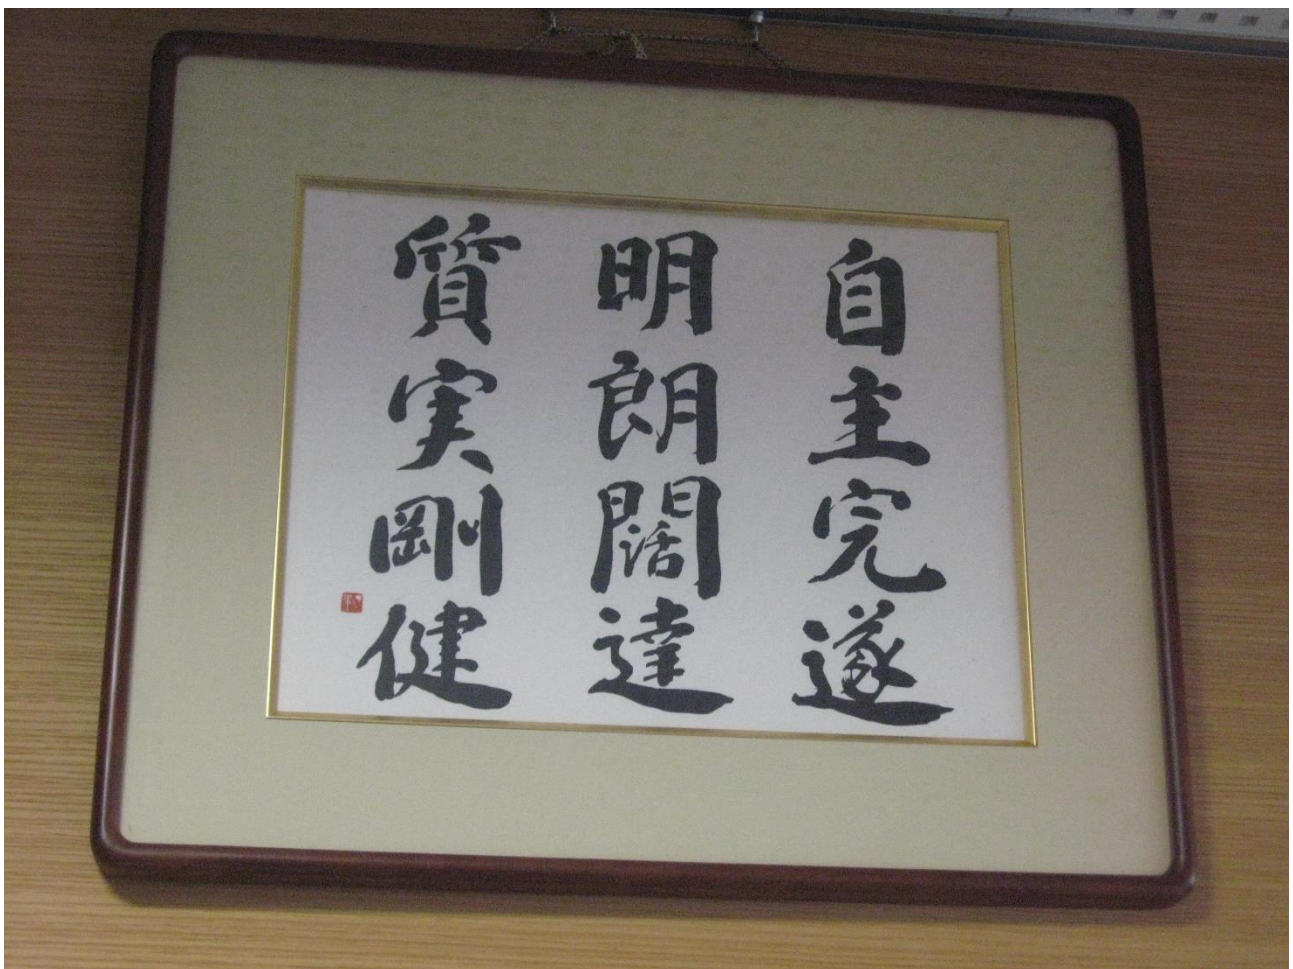 自主完遂
明朗闊達
質実剛健